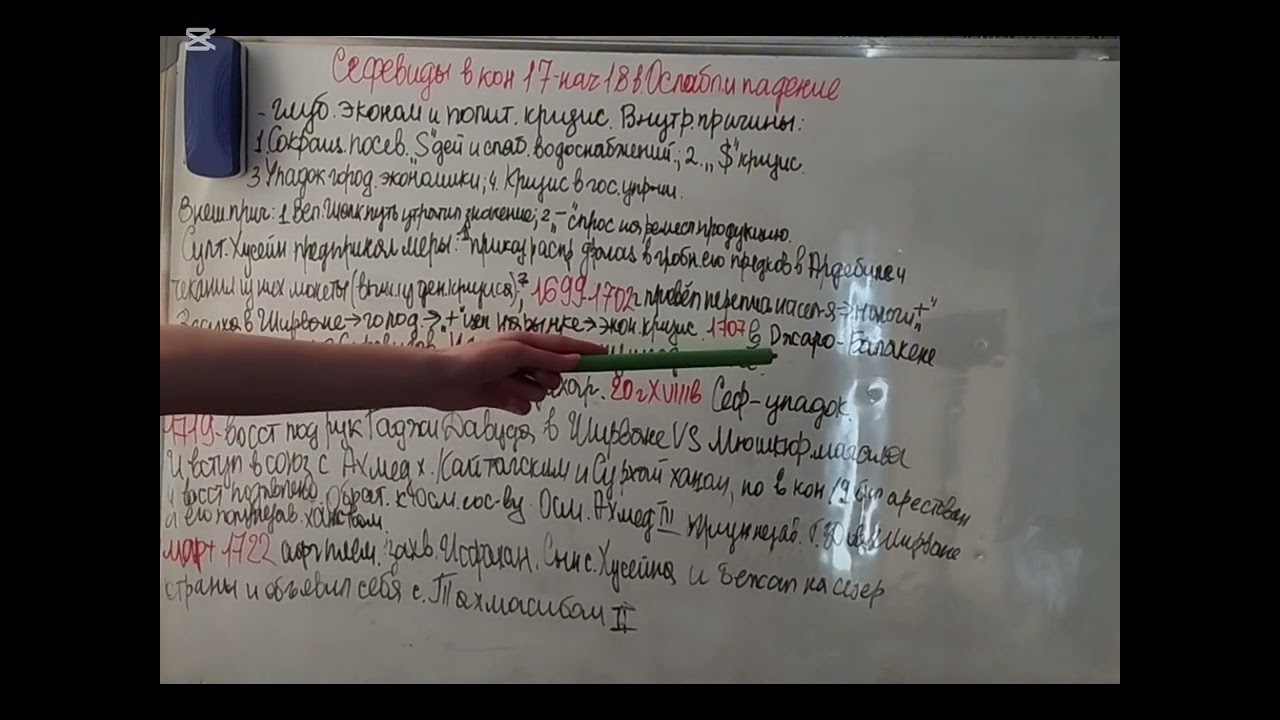 Сефевиды в кон 17-нач 18в. Ослабл. и падение
- глуб. эконом и полит. кризис. Внутр. причины:
1. Сокращ. посев. "S"дей и слаб. водоснабжений; 2. „$" кризис.
3 Упадок город. экономики; 4. Кризис в гос. упр-ии.
Внеш. прич: 1. Вел. Шелк путь утратил значение; 2„-" спрос на ремесл продукцию.
Султ. Хусейн предпринял меры: 1 приказ распр в гробн. его предков в Ардебиле и
чеканил из них монеты (вых. из ден. кризиса); 2, 1699-1702г провёл перепись насел-я → налоги„+"
Засуха в Ширване → голод. → „+" цен на рынке → экон. кризис. 1707 в Джаро-Балакене
20г XVIIIв Сеф-упадок.
1719- восст под рук Гаджи Давуда в Ширване VS Мюшкюр магала
И вступ в союз с Ахмед х. Кайтагским и Сурхай ханом, но в кон 19 был арестован
и восст подавлено. Обрат. к Осм. гос-ву. Осм. Ахмед III в Ширване
и его полунезав. ханством.
март 1722 захв. Исфахан. Сын с. Хусейна и бежал на север
страны и объявил себя с. Тахмасибом II